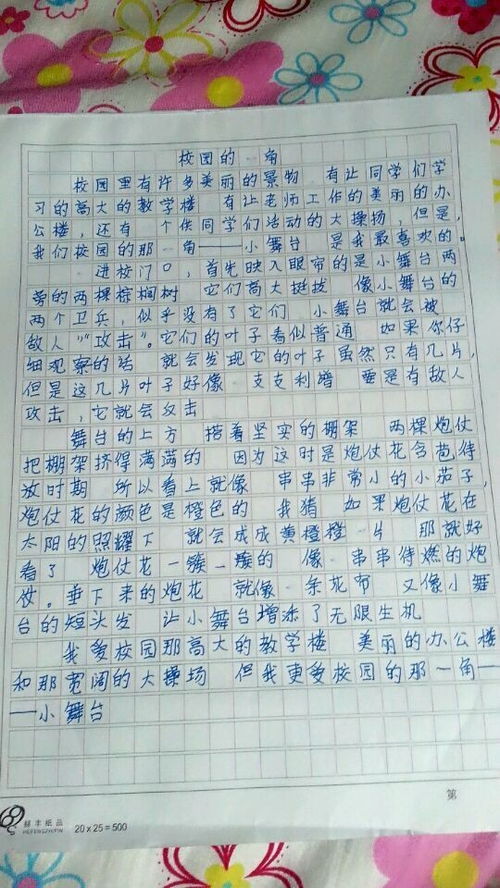 校园的一角
校园里有许多美丽的景物 有让同学们学
习的高大的教学楼 有让老师工作的美丽的办
公楼，还有 个供同学们活动的大操场，但是，
我们校园的那一角——小舞台 是我最喜欢的。
进校门口，首先映入眼帘的是小舞台两
旁的两棵棕榈树 它们高大挺拔 像小舞台的
两个卫兵，似乎没有了它们 小舞台就会被
敌人“攻击”。它们的叶子看似普通 如果你仔
细观察的话 就会发现它的叶子虽然只有几片，
但是这几片叶子好像 支支利增 要是有敌人
攻击，它就会攻击
舞台的上方 搭着坚实的棚架 两棵炮仗
把棚架挤得满满的 因为这时是炮仗花含苞待
放时期 所以看上就像 串串非常小的小茄子，
炮仗花的颜色是橙色的 我猜 如果炮仗花在
太阳的照耀下 就会成成黄橙橙一片 那就好
看了 炮仗花一簇一簇的 像一串串待燃的炮
仗。垂下来的炮花 就像一条花布 又像小舞
台的短头发 让小舞台增添了无限生机
我爱校园那高大的教学楼 美丽的办公楼
和那宽阔的大操场 但我更爱校园的那一角—
—小舞台
第
20 x 25 = 500